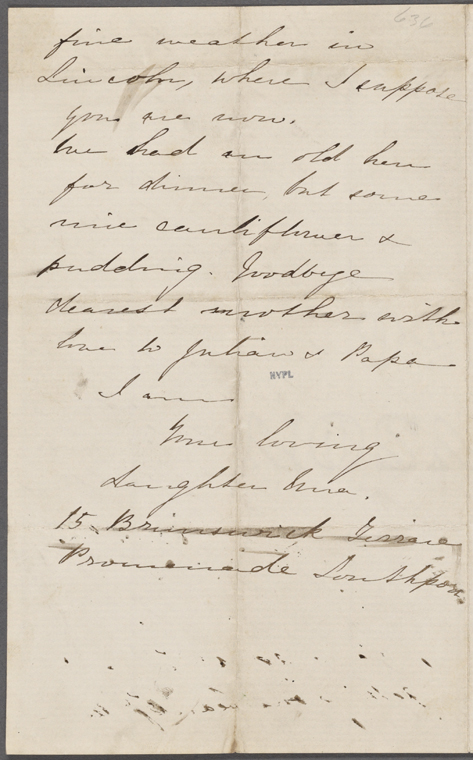 636
fine weather in
Lincoln, where I suppose
you are now.
We had an old hen
for dinner, but some
nice cauliflower &
pudding. Goodbye
dearest mother with
love to Julian & Papa
I am
Your loving
daughter Una.
15 Brunswick Terrace
Promenade Southport
NYPL